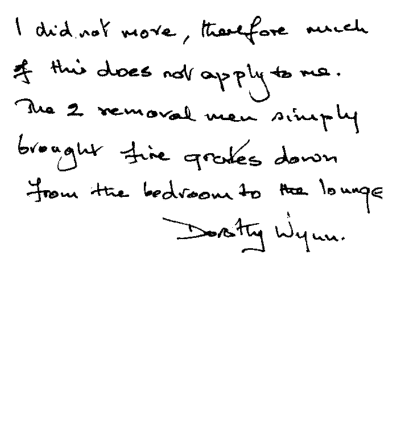 I did not move, therefore much
of this does not apply to me.
The 2 removal men simply
brought fire grates down
from the bedroom to the lounge
Dorothy Wynn.